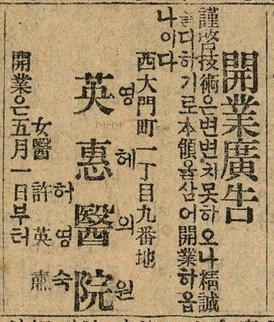 開業廣告
謹啓技術은변변치못하오나精誠
을다하기로本領을삼어開業하옵
나이다
西大門町一丁目九番地
영혜의원
英惠醫院
허영숙
女醫 許英肅
開業은五月一日부터